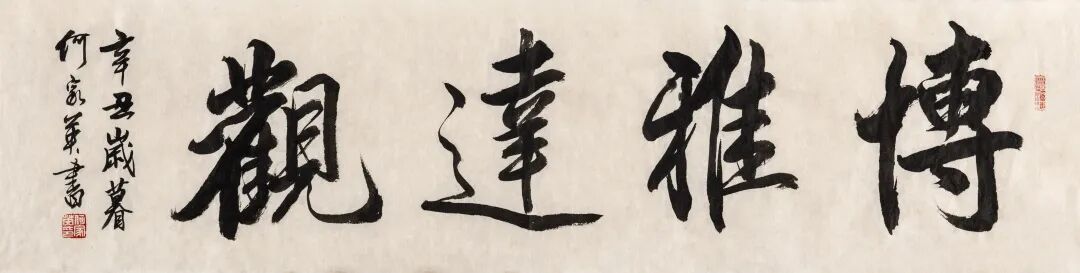 博雅達觀
辛丑歲暮
何家英書